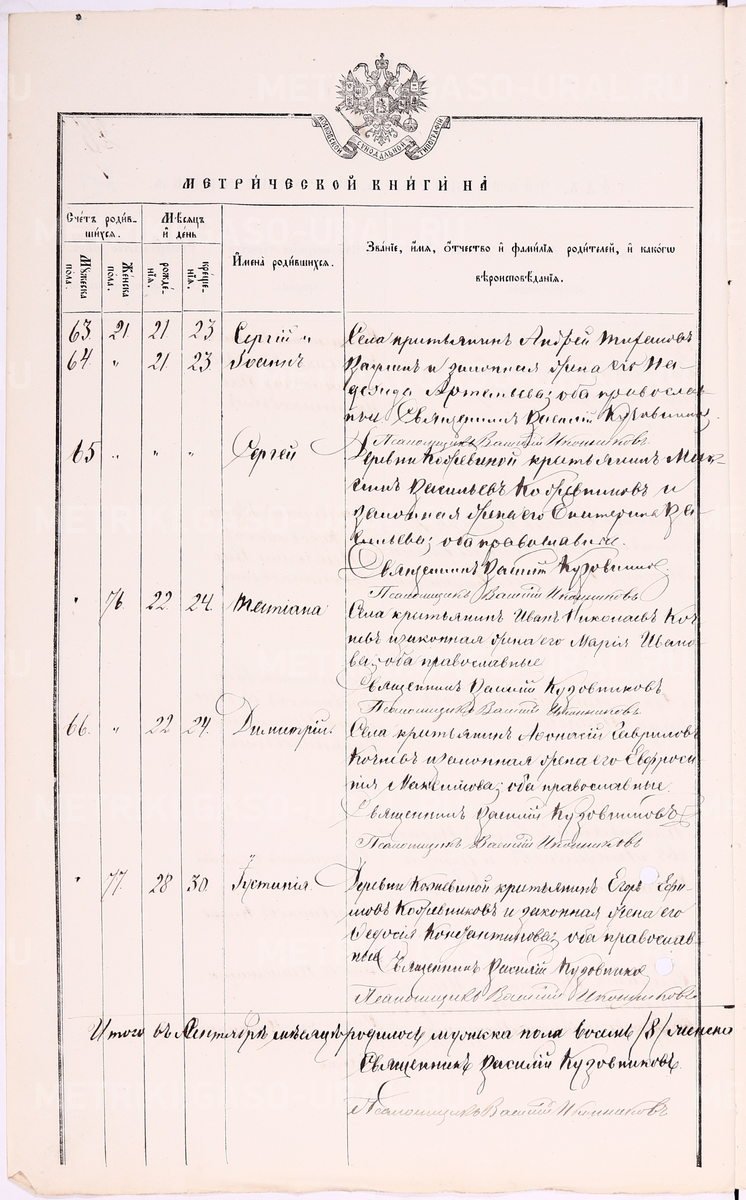 МОСКОВСКОЙ СѴНОДАЛЬНОЙ ТИПОГРАФІИ
МЕТРИ́ЧЕСКОЙ КНИ́ГИ НА̀
Сче́тъ роди́в-
шихся.
Мѣ́сяцъ
и̂ де́нь
Мꙋ́жеска
по́ла.
Же́нска
по́ла.
рожде́-
нїѧ.
креще́-
нїѧ.
И̂мена̀ роди́вшихся.
Зва́нїе, и́мя, ѻ́тчество и̂ фами́лїя роди́телей, и̂ како́гѡ
вѣроисповѣ́данїѧ.
63. 21. 21 23 Сергій " Села крестьянинъ Андрей
64. " 21 23 Іоаннъ и законная жена его На-
дежда Артемьева; оба православ-
ные Священникъ Василій Кузовниковъ
Псаломщикъ Василій Иконниковъ
65 " " " Сергей Деревни Кожевиной крестьянинъ Мак-
симъ Васильевъ Кожевниковъ и
законная жена его Екатерина Ва-
сильева; оба православные.
Священникъ Василій Кузовников
Псаломщикъ Василій Иконниковъ
" 76. 22 24. Татіана Села крестьянинъ Иванъ Николаевъ
и законная жена его Марія Ивано-
ва; оба православные
Священникъ Василій Кузовниковъ
Псаломщикъ Василій Иконниковъ
66. " 22 24. Димитрій. Села крестьянинъ Афонасій Гавриловъ
и законная жена его Евфроси-
нія Максимова; оба православные.
Священникъ Василій Кузовниковъ
Псаломщикъ Василій Иконниковъ
" 77. 28 30. Іустинія. Деревни Кожевиной крестьянинъ Егоръ Ефи-
мовъ Кожевниковъ и законная жена его
Федосія Константинова; оба православ-
ные Священникъ Василій Кузовников
Псаломщикъ Василій Иконниковъ
Итого въ Сентябрѣ мѣсяцѣ родилось мужска пола восемь /8/ женска
Священникъ Василій Кузовниковъ.
Псаломщикъ Василій Иконниковъ